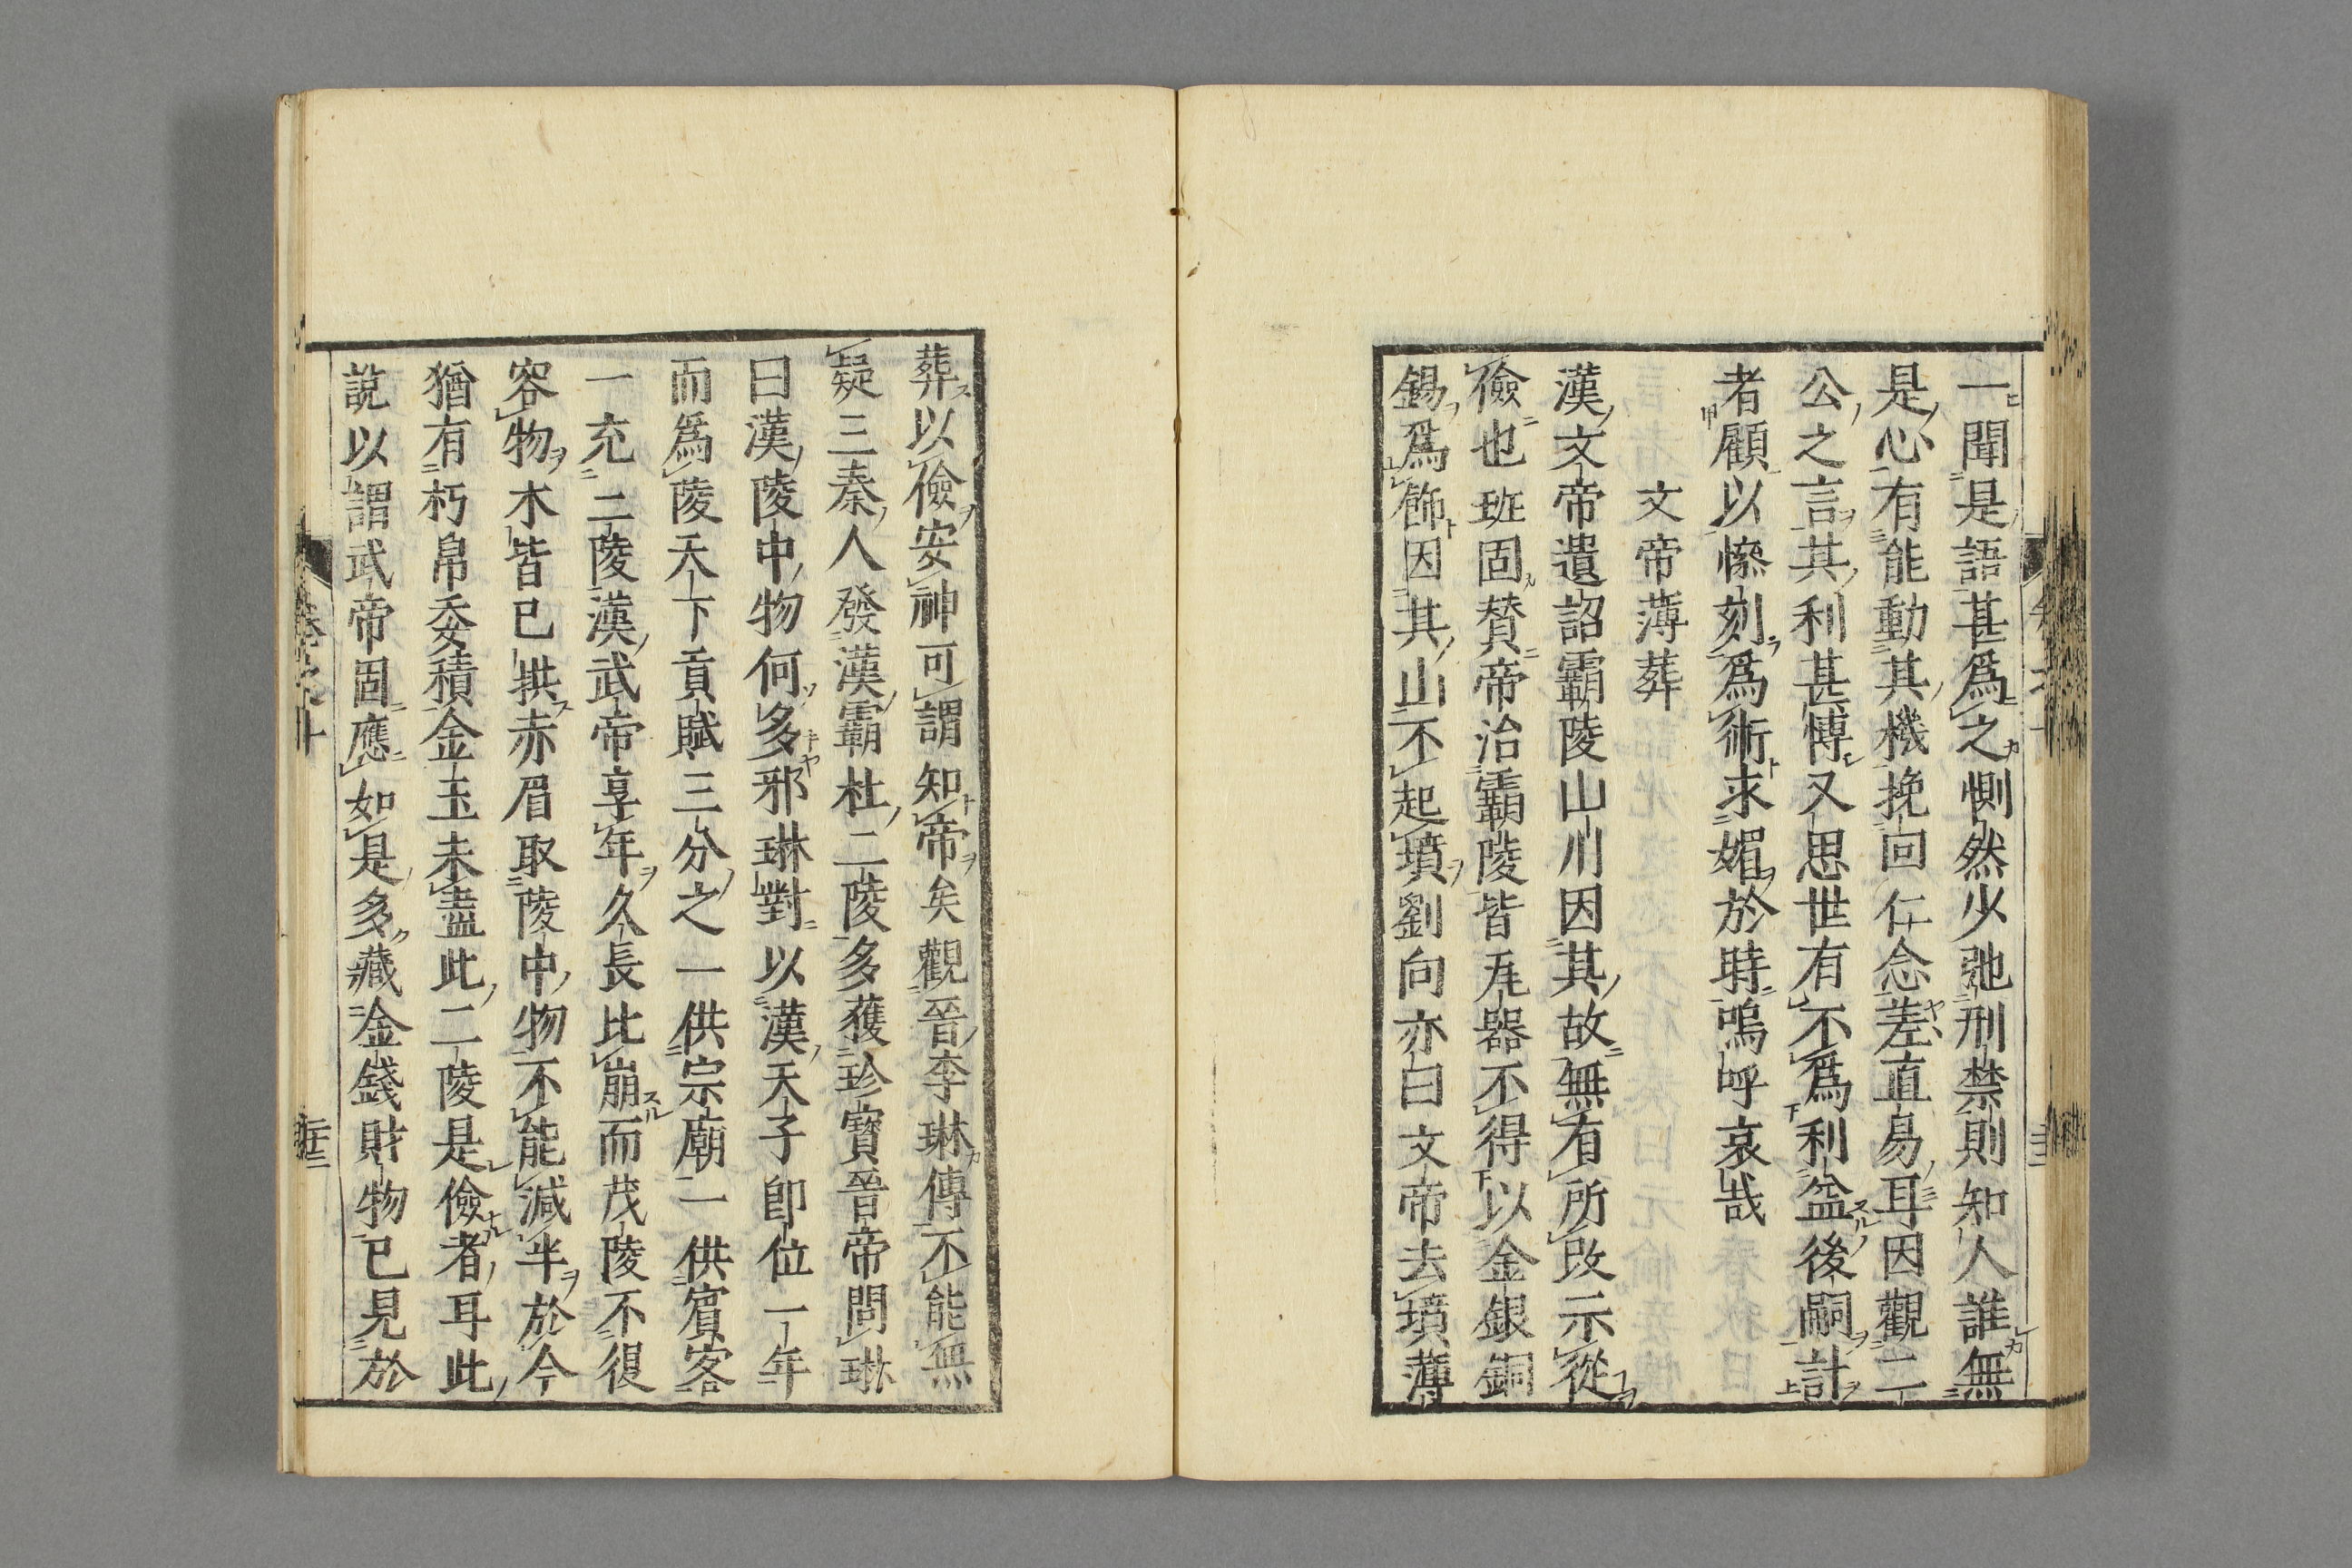 一聞是語甚爲之惻然少弛刑禁則知人誰無
是心有能動其機挽回仁念差直易耳因觀二
公之言其利甚博又思世有不爲利益後嗣計
者顧以慘刻爲術求媚於時嗚呼哀哉
文帝薄葬
漢文帝遺詔霸陵山川因其故無有所改示從
儉也班固賛帝治霸陵皆瓦器不得以金銀銅
錫爲飾因其山不起墳劉向亦曰文帝去墳薄
葬以儉安神可謂知帝矣觀晉李琳傳不能無
疑三秦人發漢霸杜二陵多獲珍寳晉帝問琳
曰漢陵中物何多邪琳對以漢天子即位一年
而爲陵天下貢賦三分之一供宗廟一供賓客
一充二陵漢武帝享年久長比崩而茂陵不復
容物木皆已拱赤眉取陵中物不能減半於今
猶有朽帛委積金玉未盡此二陵是儉者耳此
說以謂武帝固應如是多藏金錢財物已見於